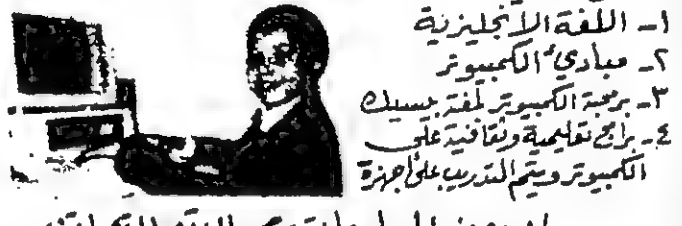 ١- اللغة الانجليزية
٢- مبادئ الكمبيوتر
٣- برمجة الكمبيوتر لمغة بيسيك
٤- برامج تعليمية وثقافية على
الكمبيوتر ويتم التدريب على اجهزة